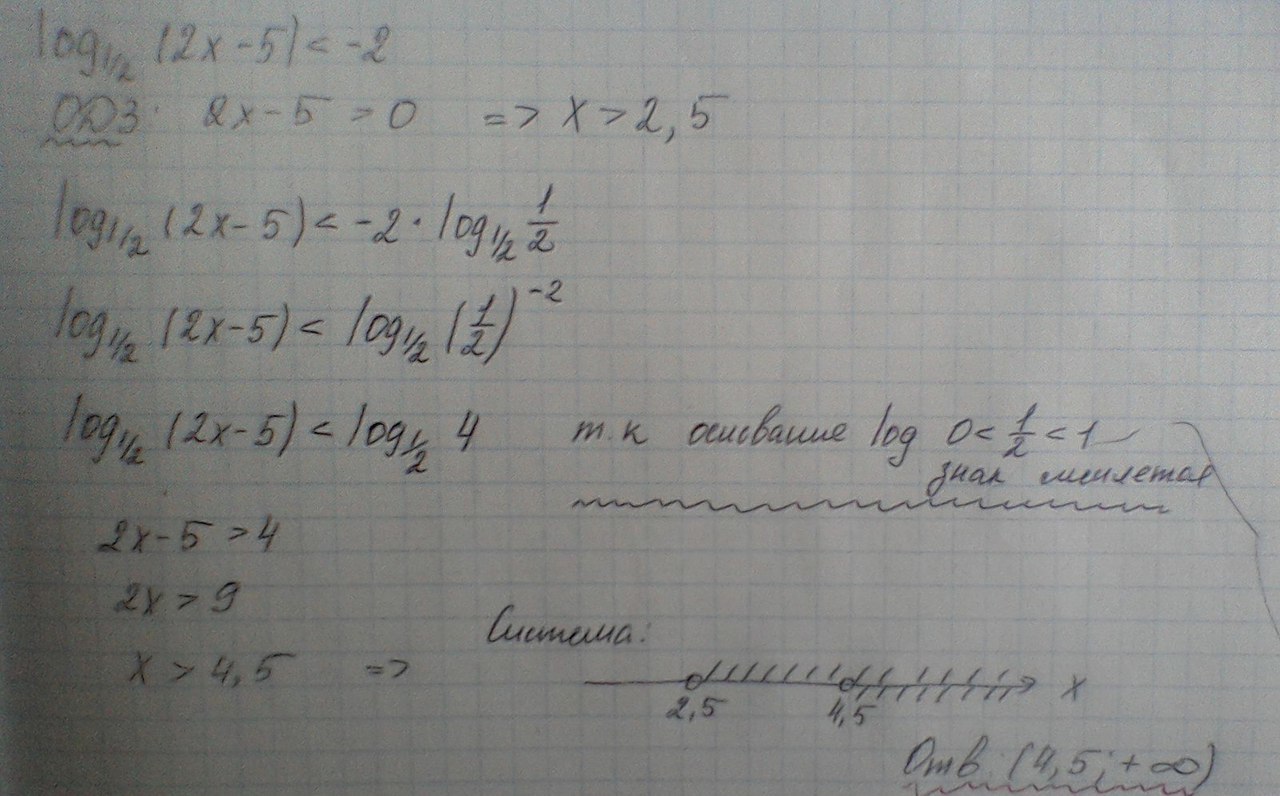 log₁/₂ (2x-5) < -2
ОДЗ: 2x-5 > 0 => x > 2,5
log₁/₂ (2x-5) < -2 · log₁/₂ 1/2
log₁/₂ (2x-5) < log₁/₂ (1/2)⁻²
log₁/₂ (2x-5) < log₁/₂ 4 т.к основание log 0 < 1/2 < 1
знак меняется
2x-5 > 4
2x > 9
Система:
x > 4,5 =>
x
2,5 4,5
Отв. (4,5; +∞)